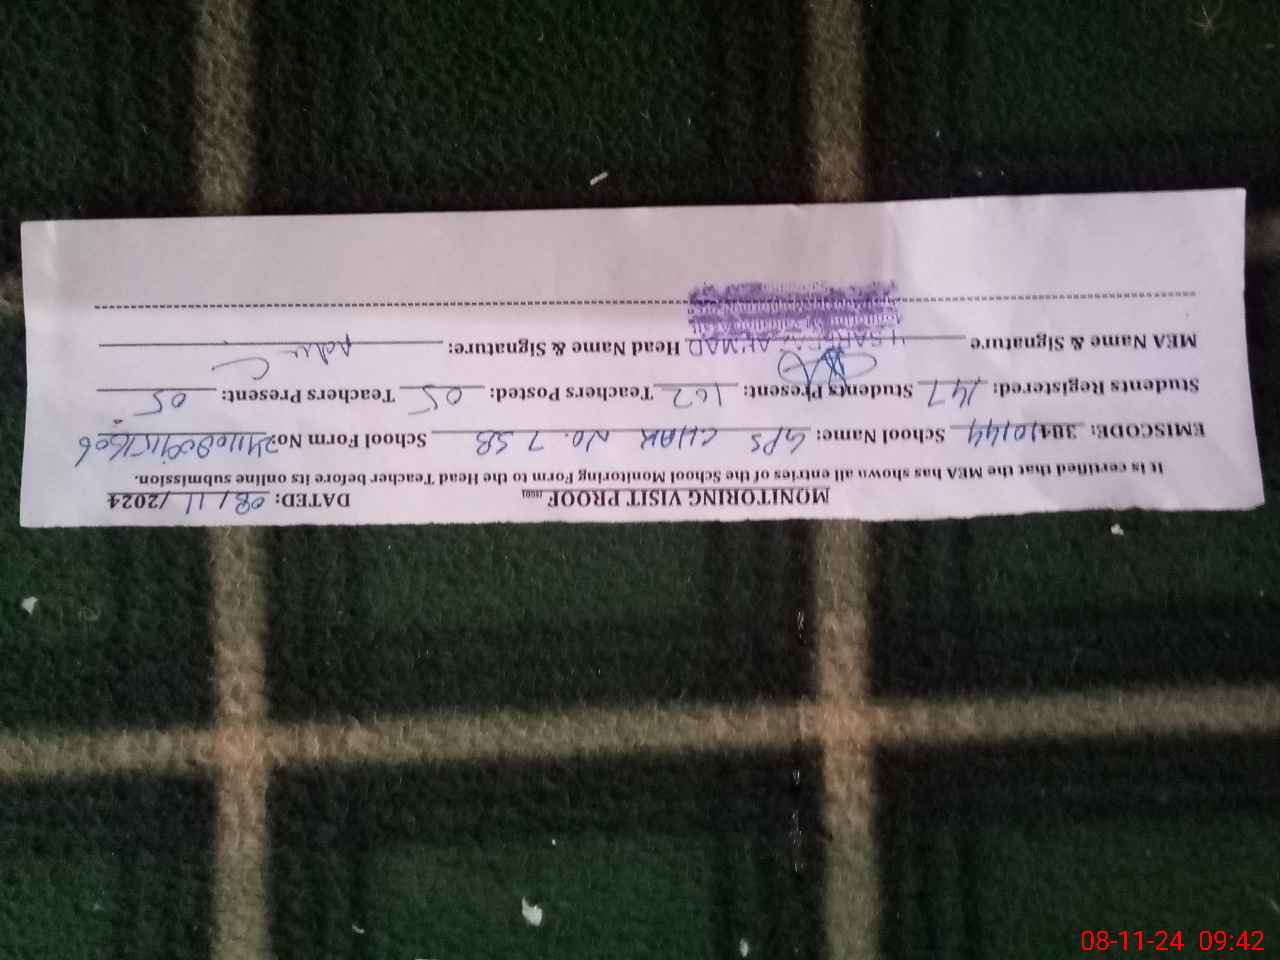 MONITORING VISIT PROOF DATED: 08/11/2024
It is certified that the MEA has shown all entries of the School Monitoring Form to the Head Teacher before its online submission.
EMISCODE: 38410144 School Name: GPS CHAK NO. 7 SB School Form No.
Students Registered: 147 Students Present: Teachers Posted: 05 Teachers Present: 05
MEA Name & Signature AHMAD Head Name & Signature:
08-11-24 09:42